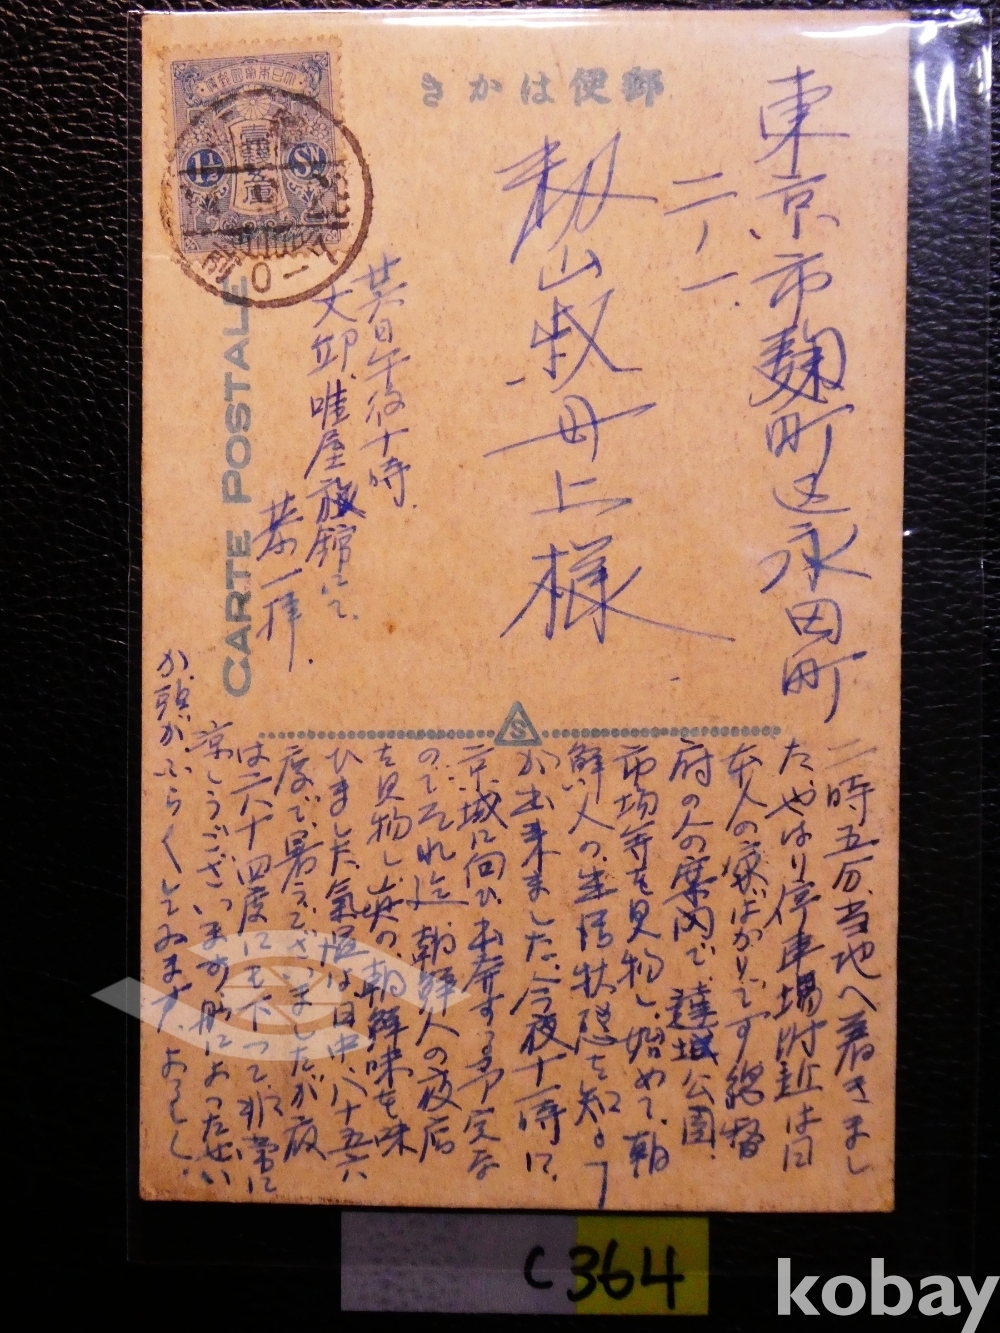 郵便はかき
東京市麹町区永田町
二ノ一
秋山叔母上様
廿八日午後十時
大邱、唯屋旅館にて、
恭一拝
CARTE POSTALE
1½
Sn
壹錢五厘
S
二時五分、当地へ着きまし
た、やはり停車場附近は日
本人の家ばかりです、総督
府の人の案内で、達城公園、
市場等を見物し、始めて、朝
鮮人の生活状態を知る事
が出来ました、今夜十一時に、
京城に向ひ出発する予定な
のでそれ迄、朝鮮人の夜店
を見物し、
の、朝鮮味を味
ひました、気温は日中、八十五六
度で暑うございましたが夜
は六十四度にも下つて、非常に
涼しうございます、船によつたせい
か、頭がふらふらしてゐます、よろしく
C364
kobay